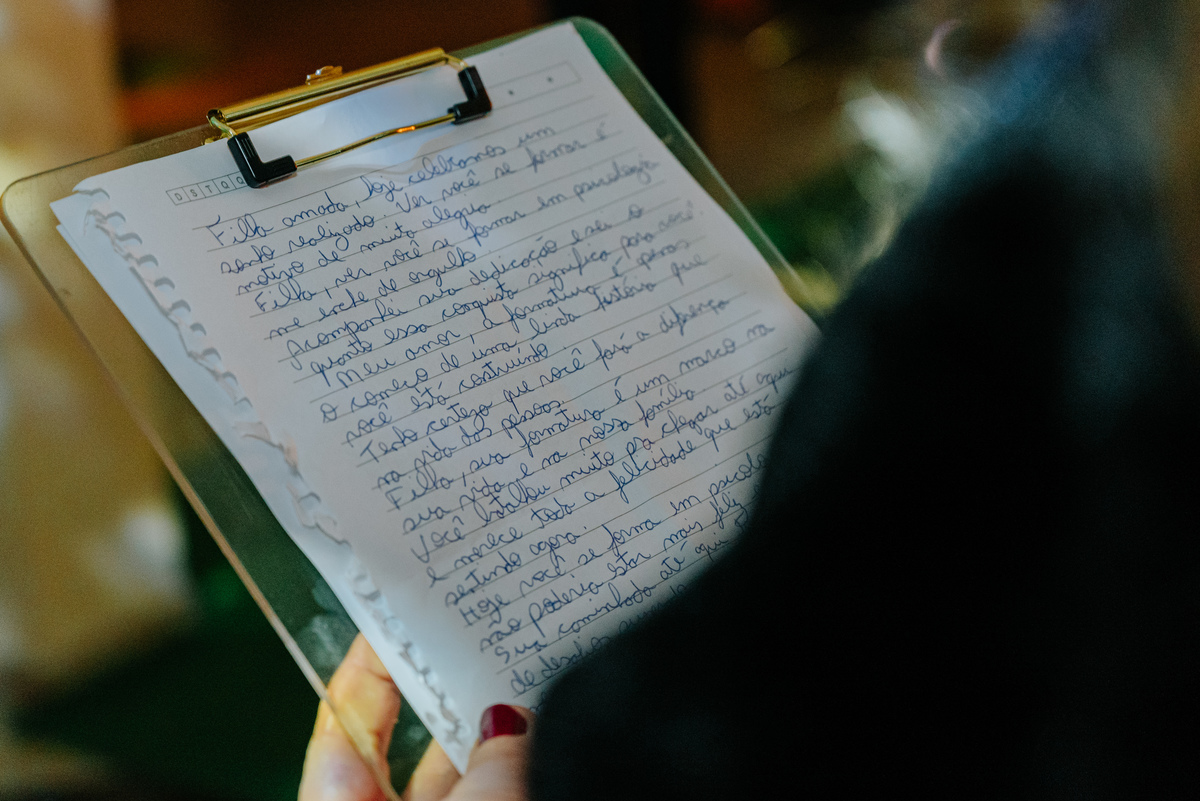 DSTQQ
Filha amada, hoje celebramos um
sonho realizado. Ver você se formar é
motivo de muita alegria.
Filha, ver você se formar em psicologia
me enche de orgulho
Acompanhei sua dedicação e sei o
quanto essa conquista significa para você.
Meu amor, a formatura é apenas
o começo de uma linda história que
você está construindo.
Tenho certeza que você fará a diferença
na vida das pessoas.
Filha, sua formatura é um marco na
sua vida e na nossa família
Você batalhou muito pra chegar até aqui
e merece toda a felicidade que está
sentindo agora.
Hoje você se forma em psicolo
não poderia estar mais feliz
Sua caminhada até aqui